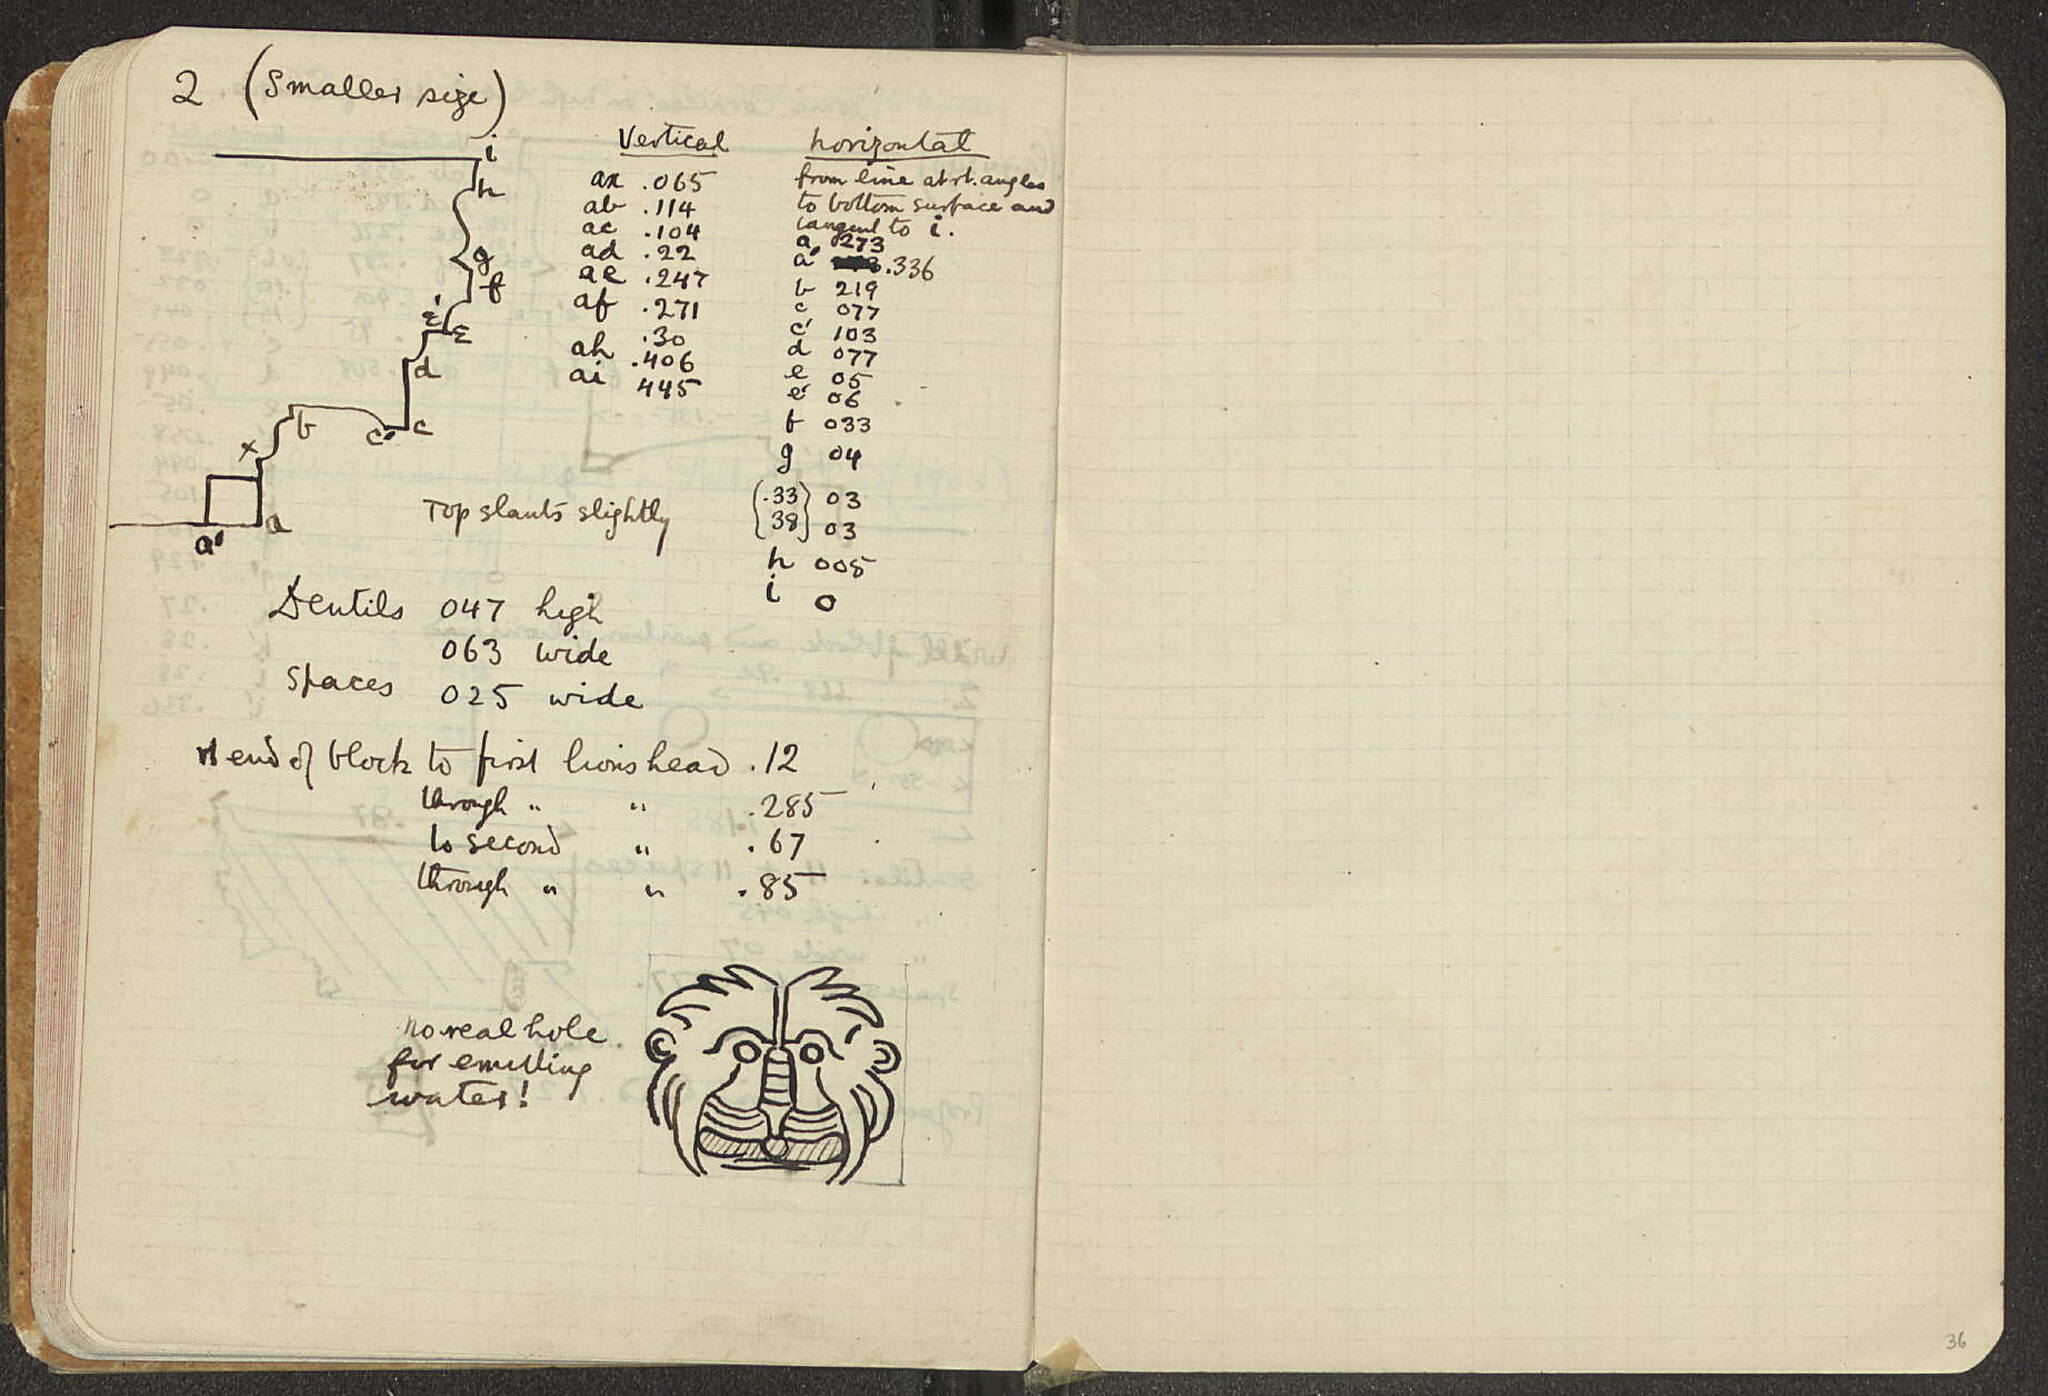 2 (Smaller size)
i
h
g
f
e'
e
d
b
c'
c
x
a
a'
Vertical
ax .065
ab .114
ac .104
ad .22
ae .247
af .271
.30
ah .406
ai 445
horizontal
from line at rt. angles
to bottom surface and
tangent to i.
a 273
a' .336
b 219
c 077
c' 103
d 077
e 05
e' 06
f 033
g 04
(.33) 03
(38) 03
h 005
i 0
Top slants slightly
Dentils 047 high
063 wide
Spaces 025 wide
end of block to first lions head .12
through " " .285
to second " .67
through " " .85
no real hole
for emitting
water!
36